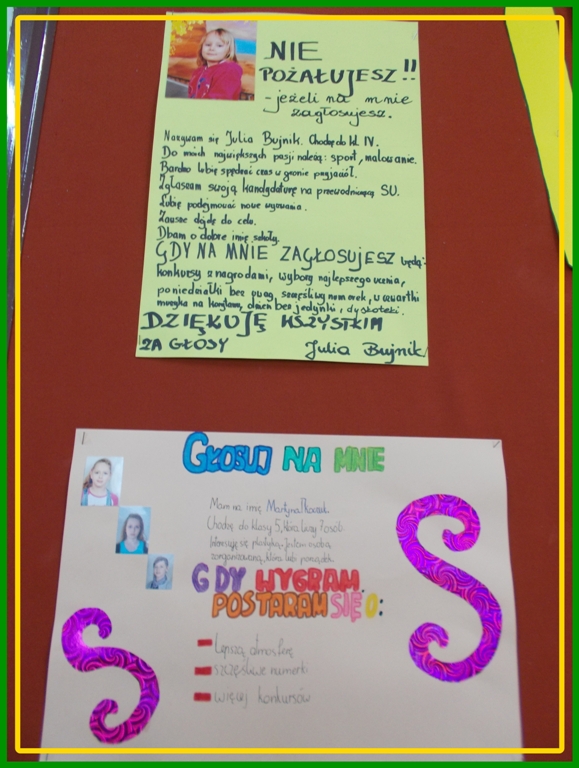 NIE
POŻAŁUJESZ!!
- jeżeli na mnie
zagłosujesz.
Nazywam się Julia Bujnik. Chodzę do kl. IV.
Do moich największych pasji należą: sport, malowanie.
Bardzo lubię spędzać czas w gronie przyjaciół.
Zgłaszam swoją kandydaturę na przewodniczącą SU.
Lubię podejmować nowe wyzwania.
Zawsze dążę do celu.
Dbam o dobre imię szkoły.
GDY NA MNIE ZAGŁOSUJESZ będą:
konkursy z nagrodami, wybory najlepszego ucznia,
poniedziałki bez uwag, szczęśliwy numerek, w czwartki
muzyka na korytarzu, dzień bez jedynki, dyskoteki.
DZIĘKUJĘ WSZYSTKIM
ZA GŁOSY Julia Bujnik
GŁOSUJ NA MNIE
Mam na imię Martyna
Chodzę do klasy 5, która liczy 7 osób.
Interesuję się plastyką. Jestem osobą
zorganizowaną, która lubi porządek.
GDY WYGRAM
POSTARAM SIĘ O:
- Lepszą atmosferę
- szczęśliwe numerki
- więcej konkursów
S
S